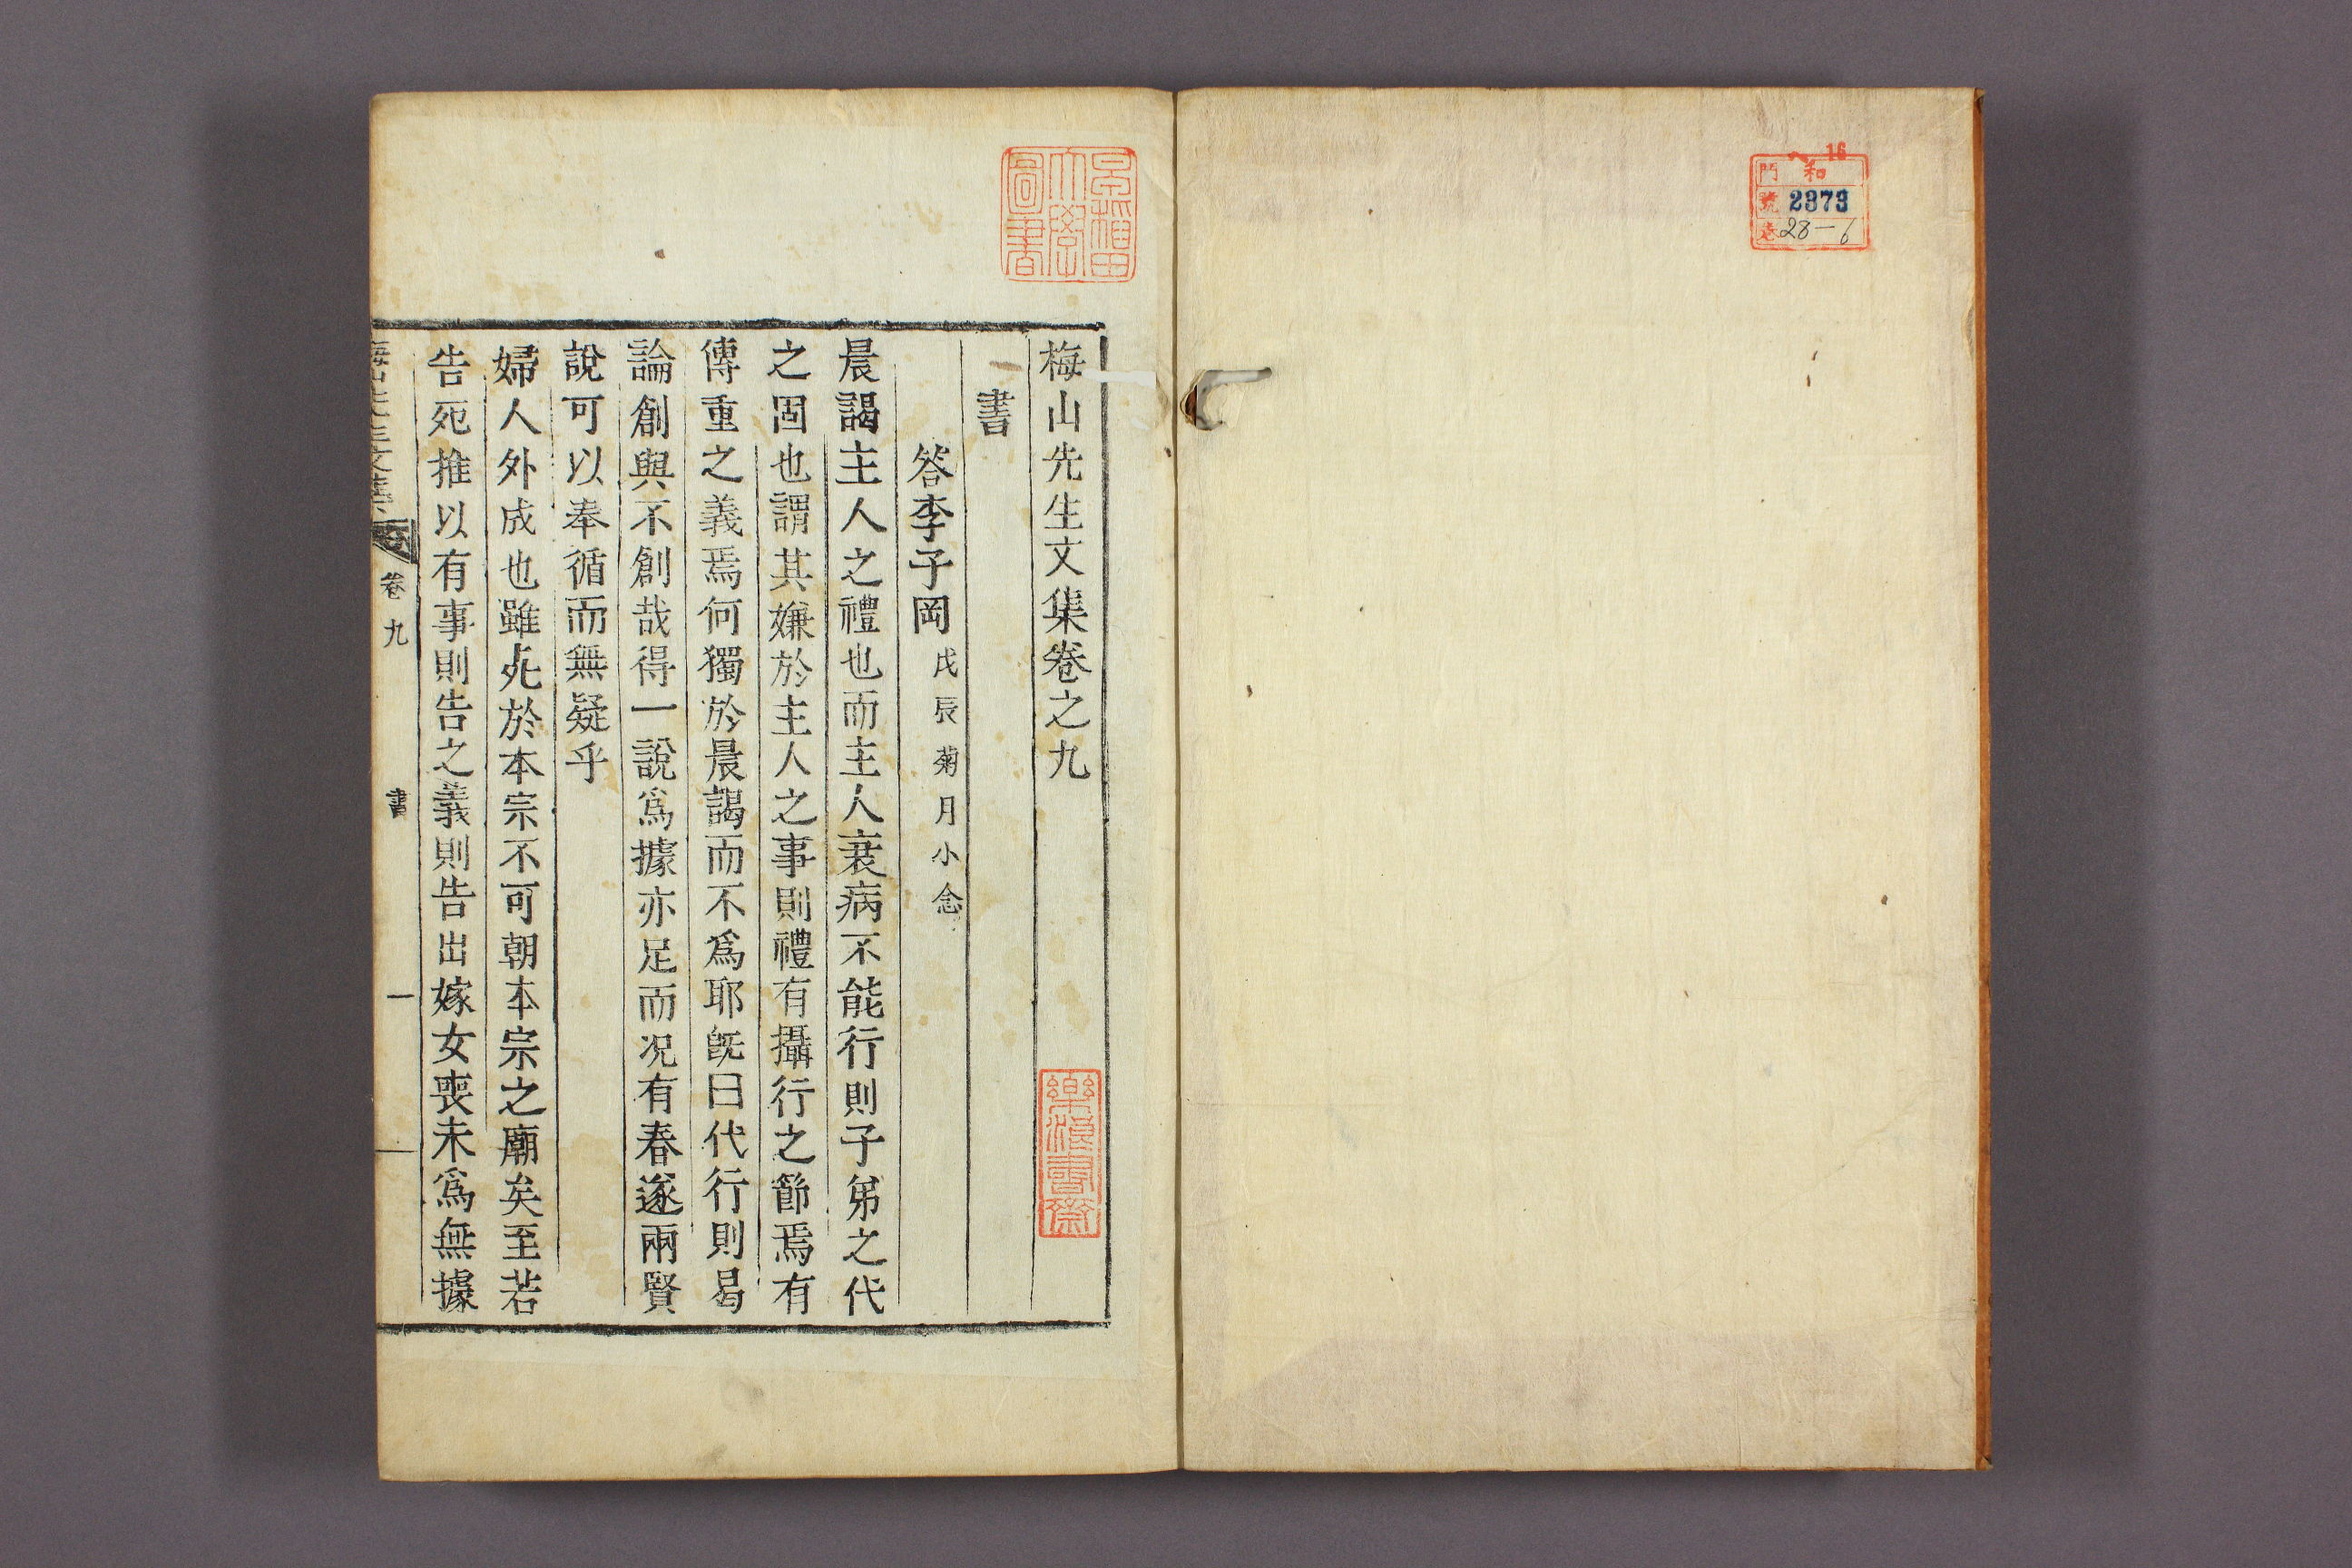 16
門 和
號 2373
巻 28-6
早稲田
大學
圖書
梅山先生文集卷之九
書
答李子岡戊辰菊月小念
晨謁主人之禮也而主人衰病不能行則子弟之代
之固也謂其嫌於主人之事則禮有攝行之節焉有
傳重之義焉何獨於晨謁而不爲耶旣曰代行則曷
論創與不創哉得一說爲據亦足而况有春遂兩賢
說可以奉循而無疑乎
婦人外成也雖死於本宗不可朝本宗之廟矣至若
告死推以有事則告之義則告出嫁女喪未爲無據
梅山先生文集
卷九
書
一